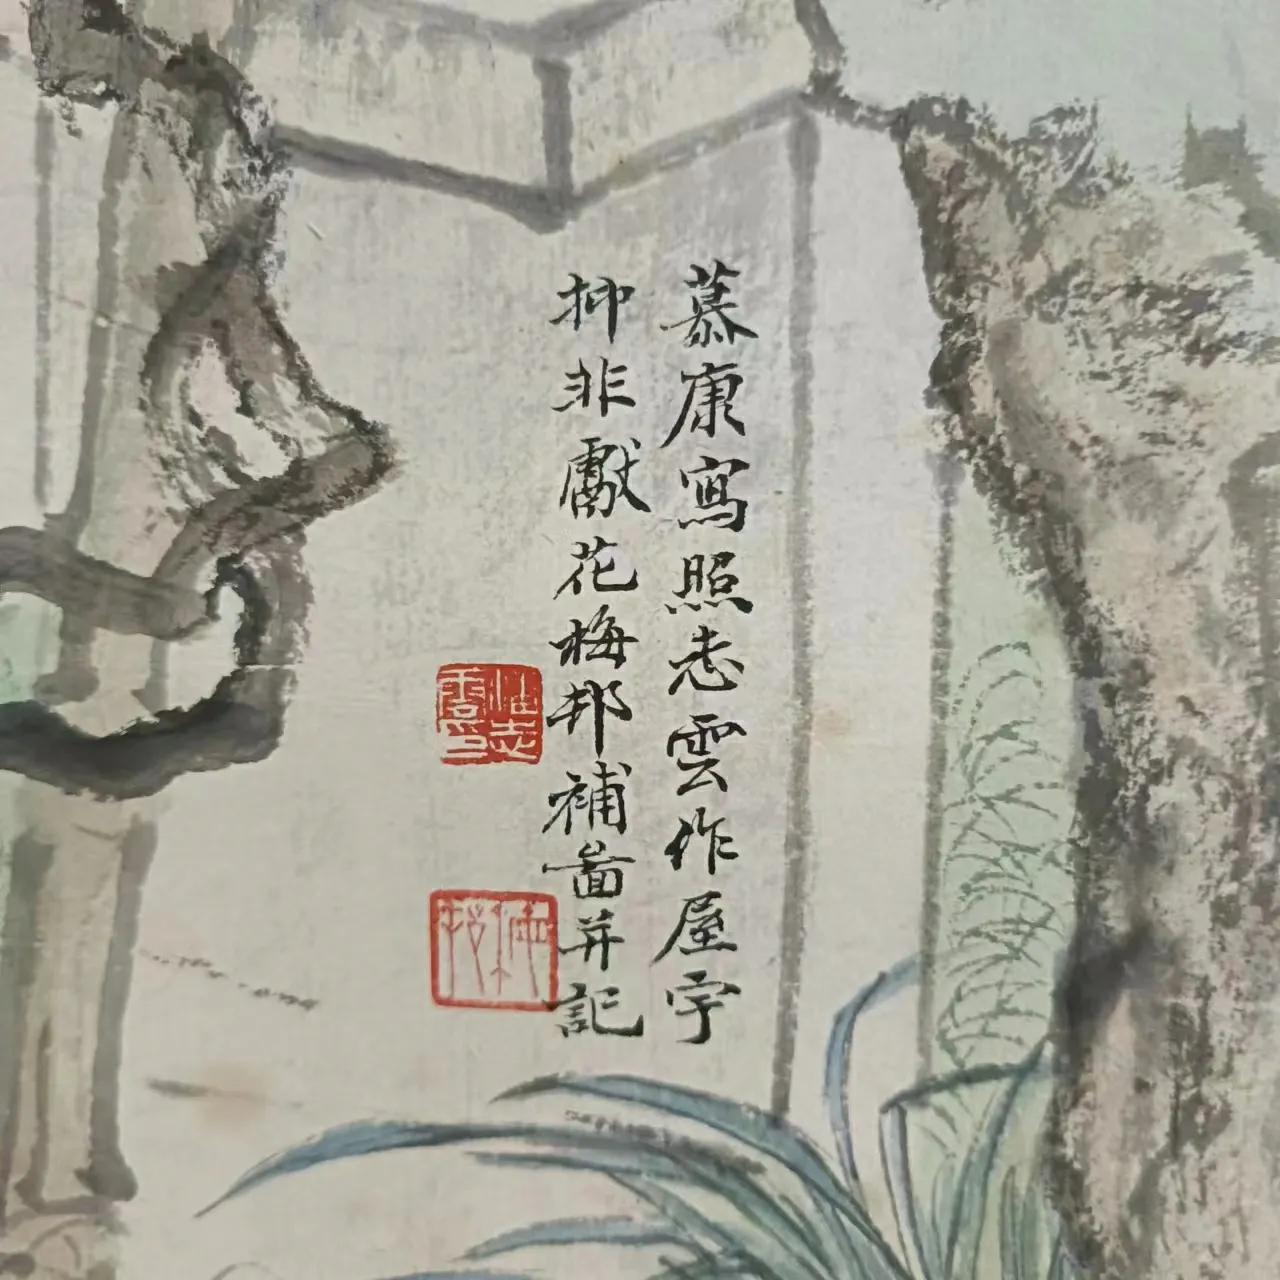 慕康寫照志雲作屋宇
抑非獻花梅邨補啚并記
汪志雲印